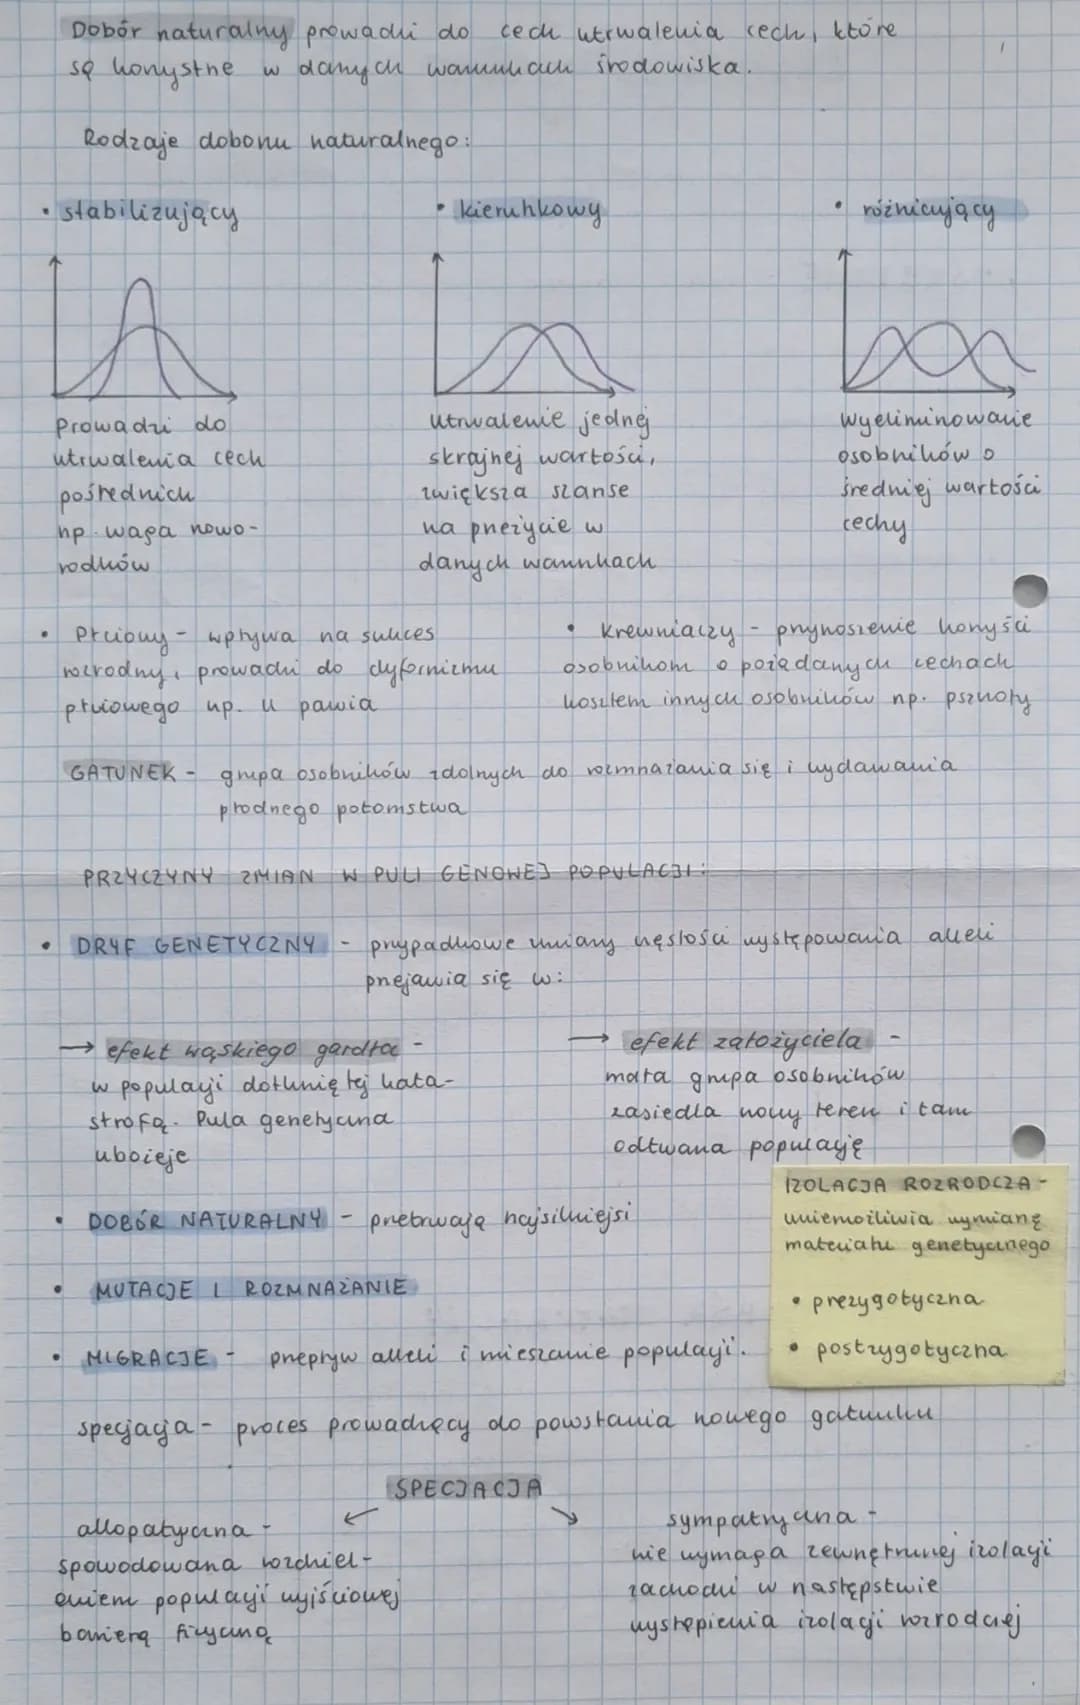 Dobór naturalny prowadzi do cech utrwalenia cech, które
są korzystne w danych warunkach środowiska.
Rodzaje doboru naturalnego:
• stabilizujący
• kierunkowy
• różnicujący
Prowadzi do
utrwalenia cech
pośrednich
np. waga nowo-
rodków
Utrwalenie jednej
skrajnej wartości,
zwiększa szanse
na przeżycie w
danych warunkach
Wyeliminowanie
osobników o
średniej wartości
cechy
• Płciowy - wpływa na sukces
rozrodny, prowadzi do dyformizmu
płciowego np. u pawia
• krewniaczy - przynoszenie korzyści
osobnikom o pożądanych cechach
kosztem innych osobników np. pszczoły
GATUNEK - grupa osobników zdolnych do rozmnażania się i wydawania
płodnego potomstwa
PRZYCZYNY ZMIAN W PULI GENOWEJ POPULACJI:
• DRYF GENETYCZNY - przypadkowe zmiany częstości występowania alleli
przejawia się w:
→ efekt wąskiego gardła -
w populacji dotkniętej kata-
strofą. Pula genetyczna
ubożeje
→ efekt założyciela -
mała grupa osobników
zasiedla nowy teren i tam
odtwarza populację
• DOBÓR NATURALNY - przetrwają najsilniejsi
• MUTACJE I ROZMNAŻANIE
• MIGRACJE - przepływ alleli i mieszanie populacji.
IZOLACJA ROZRODCZA -
uniemożliwia wymianę
materiału genetycznego
• prezygotyczna
• postzygotyczna
specjacja - proces prowadzący do powstania nowego gatunku
SPECJACJA
allopatryczna -
spowodowana rozdziel-
eniem populacji wyjściowej
barierą fizyczną
sympatryczna -
nie wymaga zewnętrznej izolacji
zachodzi w następstwie
wystąpienia izolacji rozrodczej